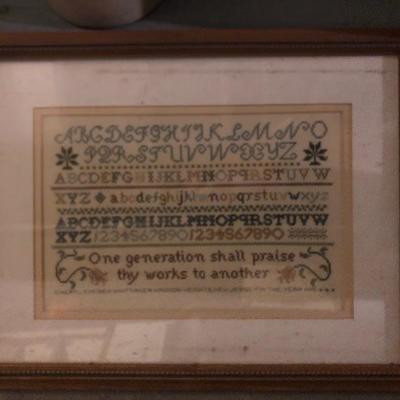 ABCDEFGHIJKLMNO
PQRSTUVWXYZ
ABCDEFGHIJKLMNOPQRSTUVW
XYZ abcdefghijklmnopqrstuvwxyz
ABCDEFGHIJKLMNOPQRSTUVW
XYZ 1234567890 1234567890
One generation shall praise
thy works to another
NEW JERSEY IN THE YEAR